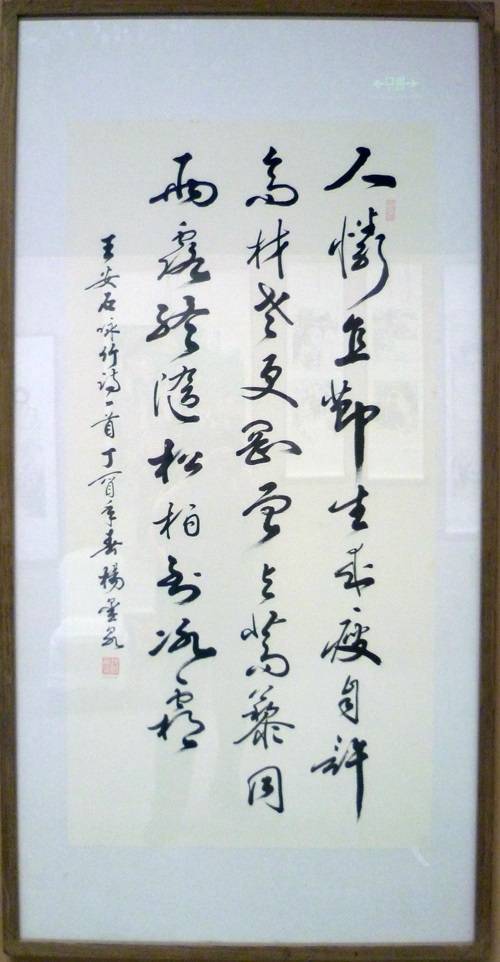 人憐直節生来瘦自許
高材老更剛曾与蒿藜同
雨露終隨松柏到冰霜
王安石咏竹诗一首丁年春楊墨泉